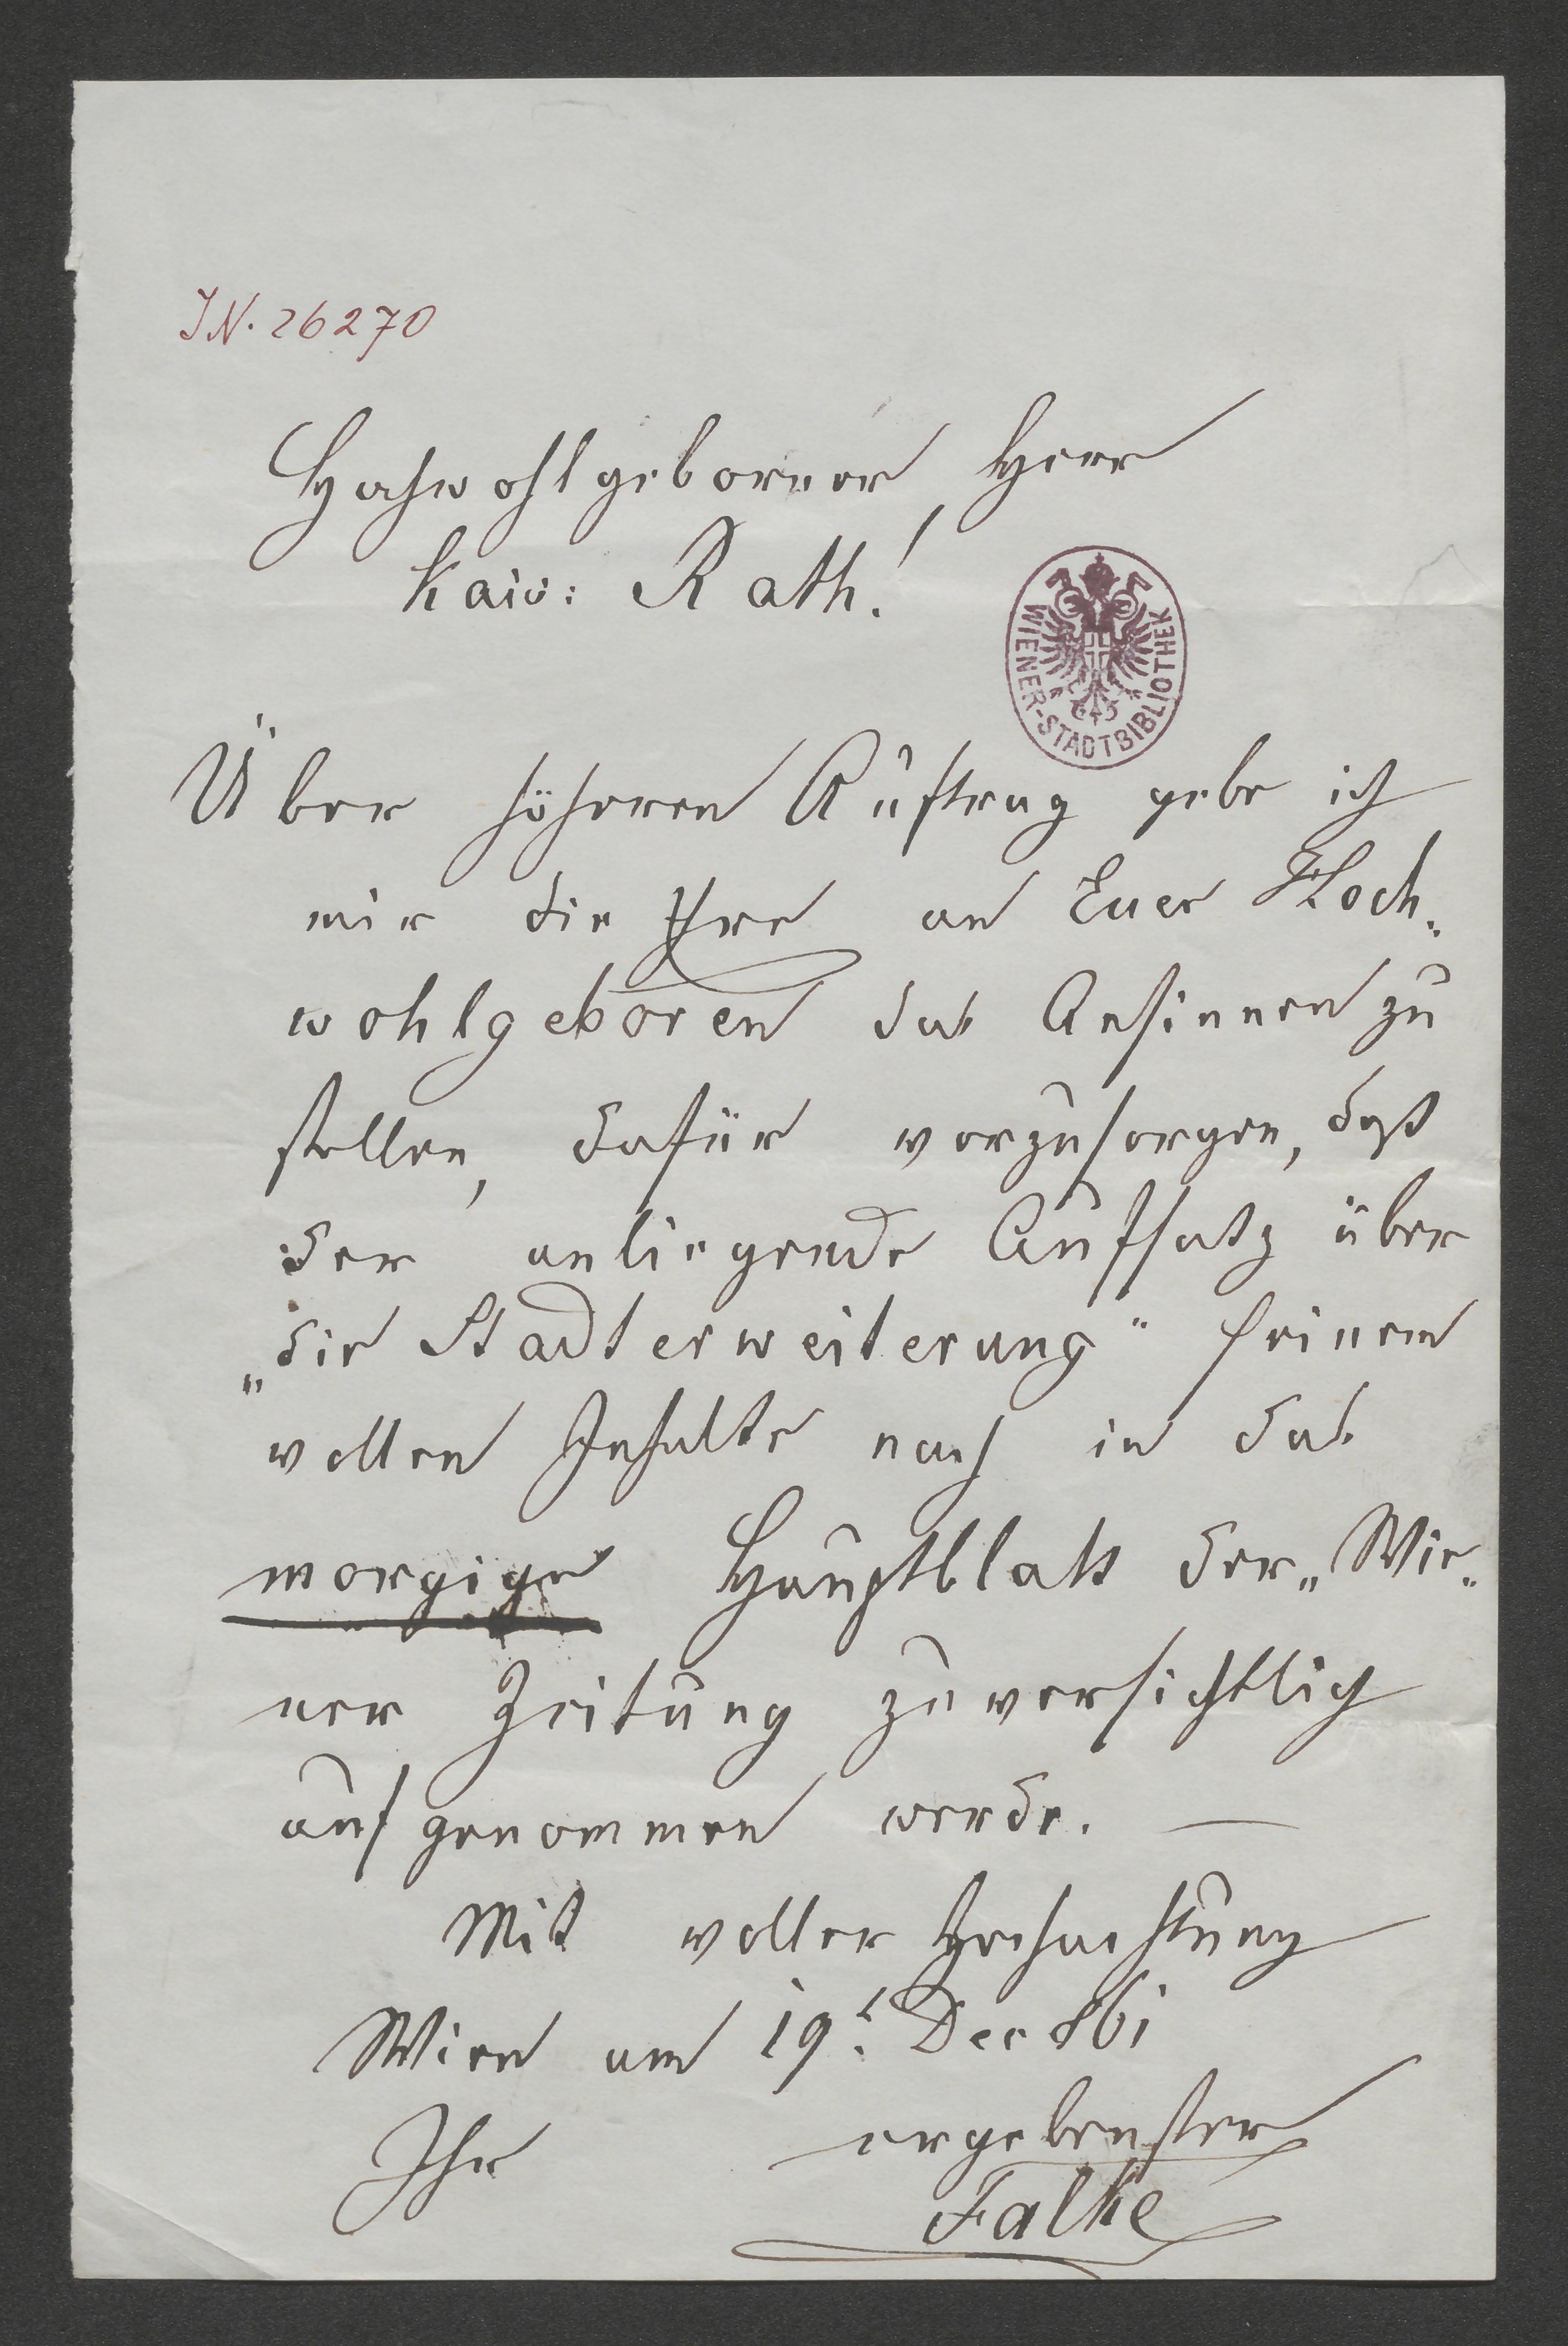 IN. 26270
Hochwohlgeborner Herr
kais: Rath!
WIENER-STADTBIBLIOTHEK
Über höheren Auftrag gebe ich
mir die Ehre an Euer Hoch„
wohlgeboren das Ansinnen zu
stellen, dafür vorzusorgen, daß
der anliegende Aufsatz über
„die Stadterweiterung" seinem
vollen Inhalte nach in das
morgige Hauptblatt der „Wie„
ner Zeitung zuversichtlich
aufgenommen werde. —
Mit voller Hochachtung
Wien am 19t. Dec 861
Ihr ergebenster
Falke